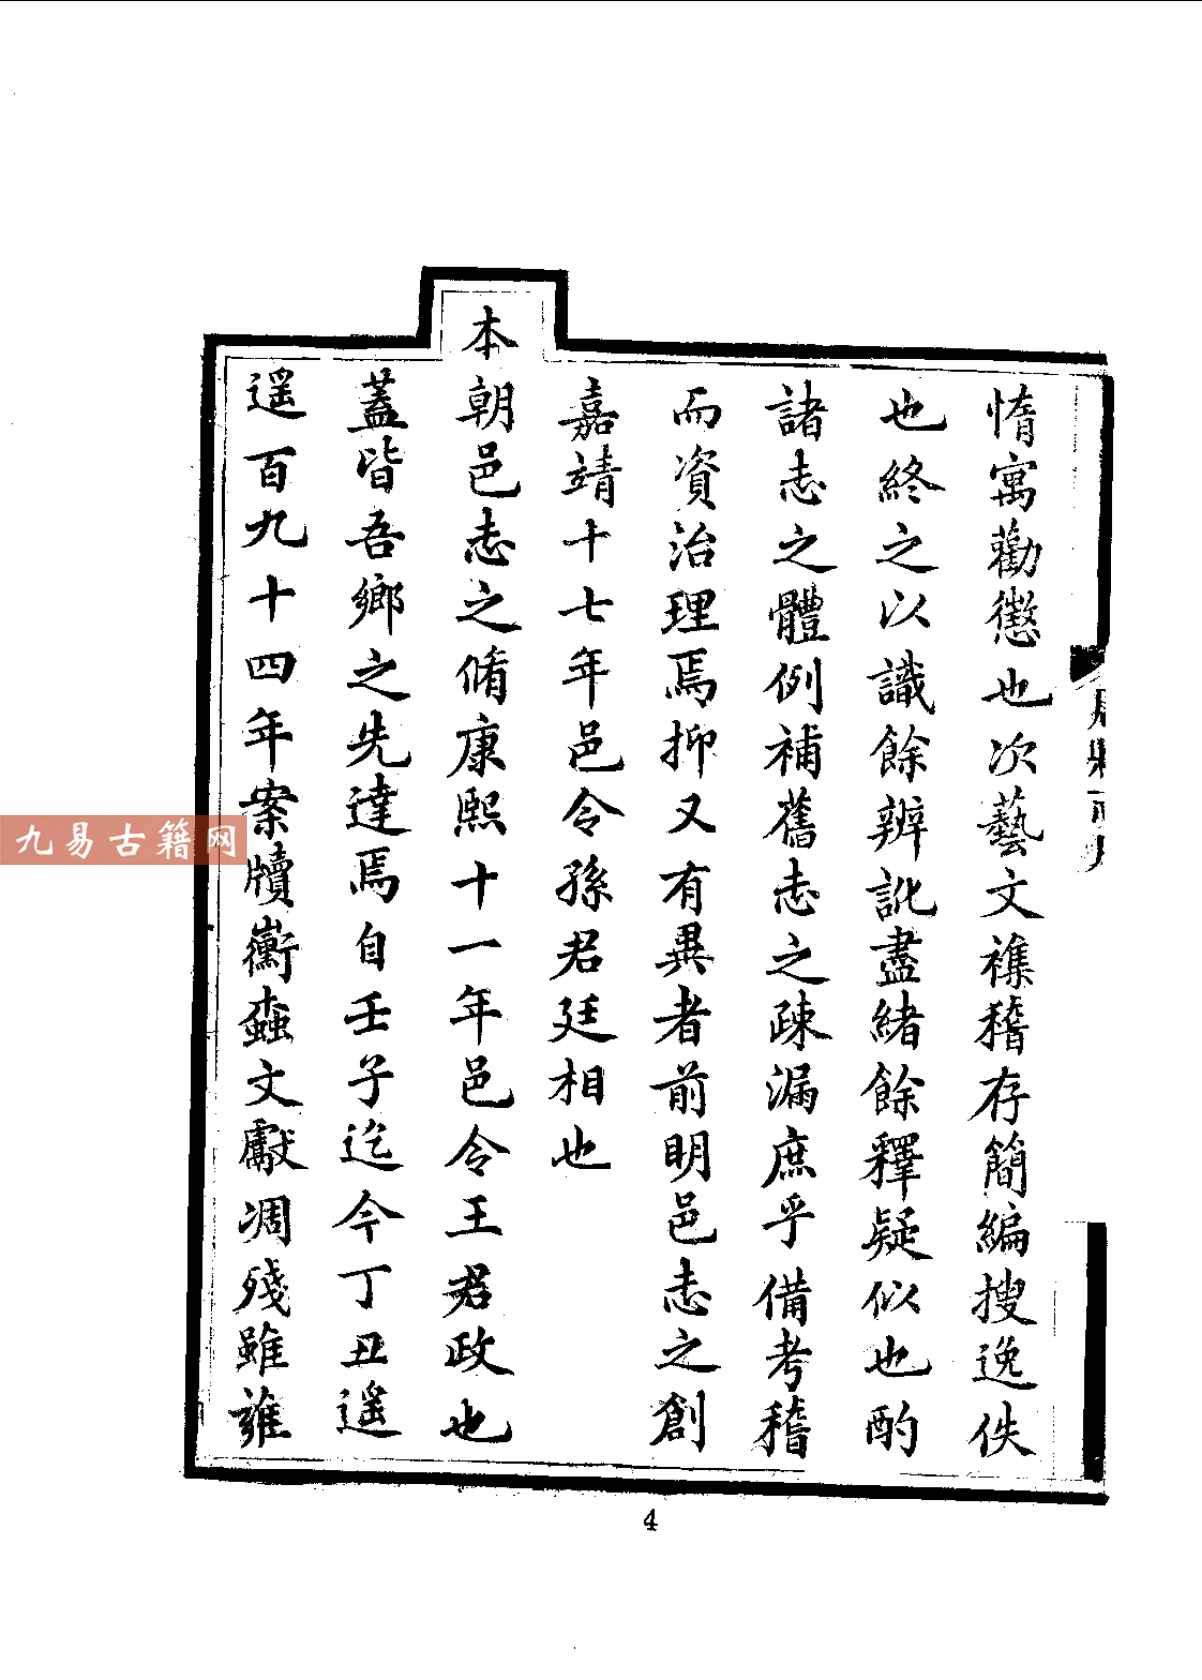 惰寓勸懲也次藝文襍稽存簡編搜逸佚
也終之以識餘辨訛盡緒餘釋疑似也酌
諸志之體例補舊志之疎漏庶乎備考稽
而資治理焉抑又有異者前明邑志之創
嘉靖十七年邑令孫君廷相也
本朝邑志之脩康熙十一年邑令王君政也
蓋皆吾鄉之先達焉自壬子迄今丁丑遥
遥百九十四年案牘衝蝕文獻凋殘雖
4
九易古籍网